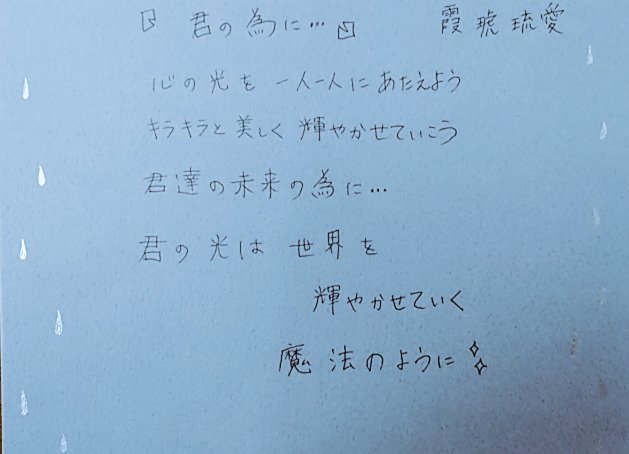 『君の為に…』 霞琥琉愛
心の光を 一人一人にあたえよう
キラキラと美しく 輝やかせていこう
君達の未来の為に…
君の光は 世界を
輝やかせていく
魔法のように